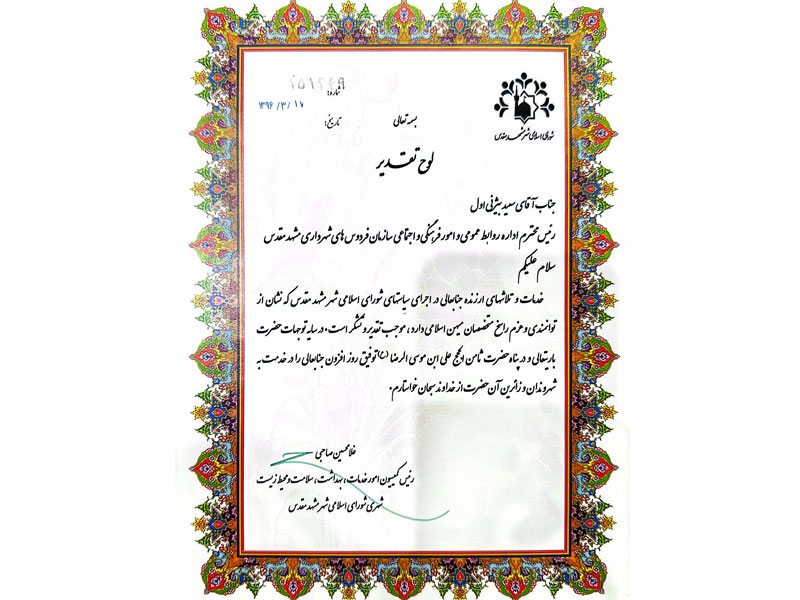 شماره:
۱۳۹۶/۳/۱۷
تاریخ:
شورای اسلامی شهر مشهد مقدس
بسمه تعالی
لوح تقدیر
جناب آقای سعید بیژنی اول
رئیس محترم اداره روابط عمومی و امور فرهنگی و اجتماعی سازمان فردوس های شهرداری مشهد مقدس
سلام علیکم
خدمات و تلاشهای ارزنده جنابعالی در اجرای سیاستهای شورای اسلامی شهر مشهد مقدس که نشان از
توانمندی و عزم راسخ متخصصان میهن اسلامی دارد، موجب تقدیر و تشکر است. در سایه توجهات حضرت
باریتعالی و در پناه حضرت ثامن الحجج علی ابن موسی الرضا (ع) توفیق روز افزون جنابعالی را در خدمت به
شهروندان و زائرین آن حضرت از خداوند سبحان خواستارم.
غلامحسین صاحبی
رئیس کمیسیون امور خدمات، بهداشت، سلامت و محیط زیست
شهری شورای اسلامی شهر مشهد مقدس